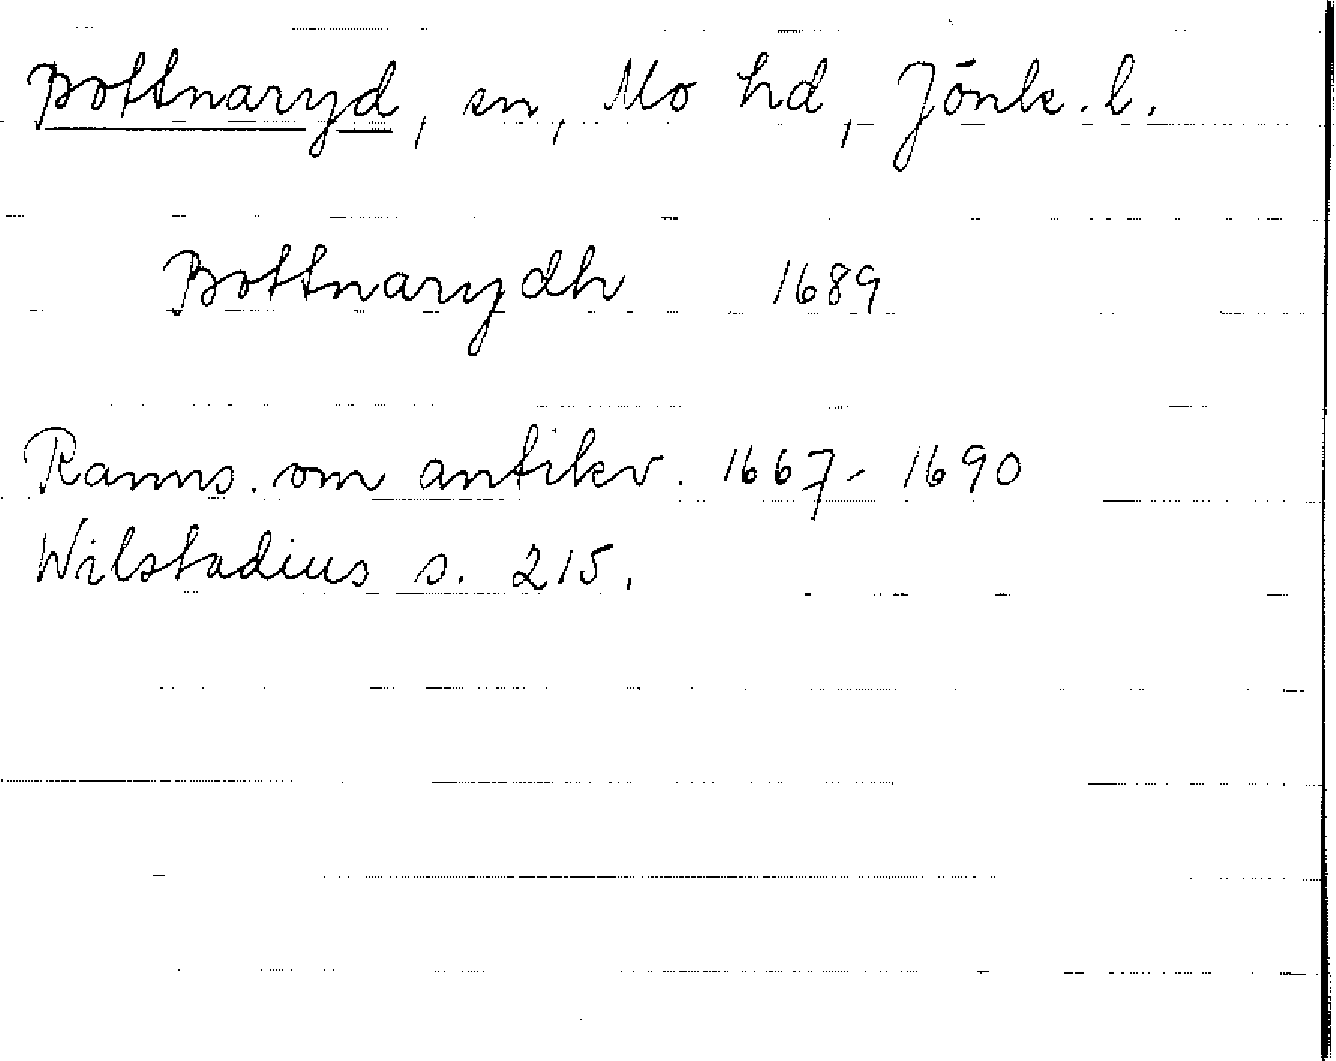 Bottnaryd, sn, Mo hd, Jönk. l.
Bottnarydh 1689
Ranns. om antikv. 1667-1690
Wilstadius s. 215.